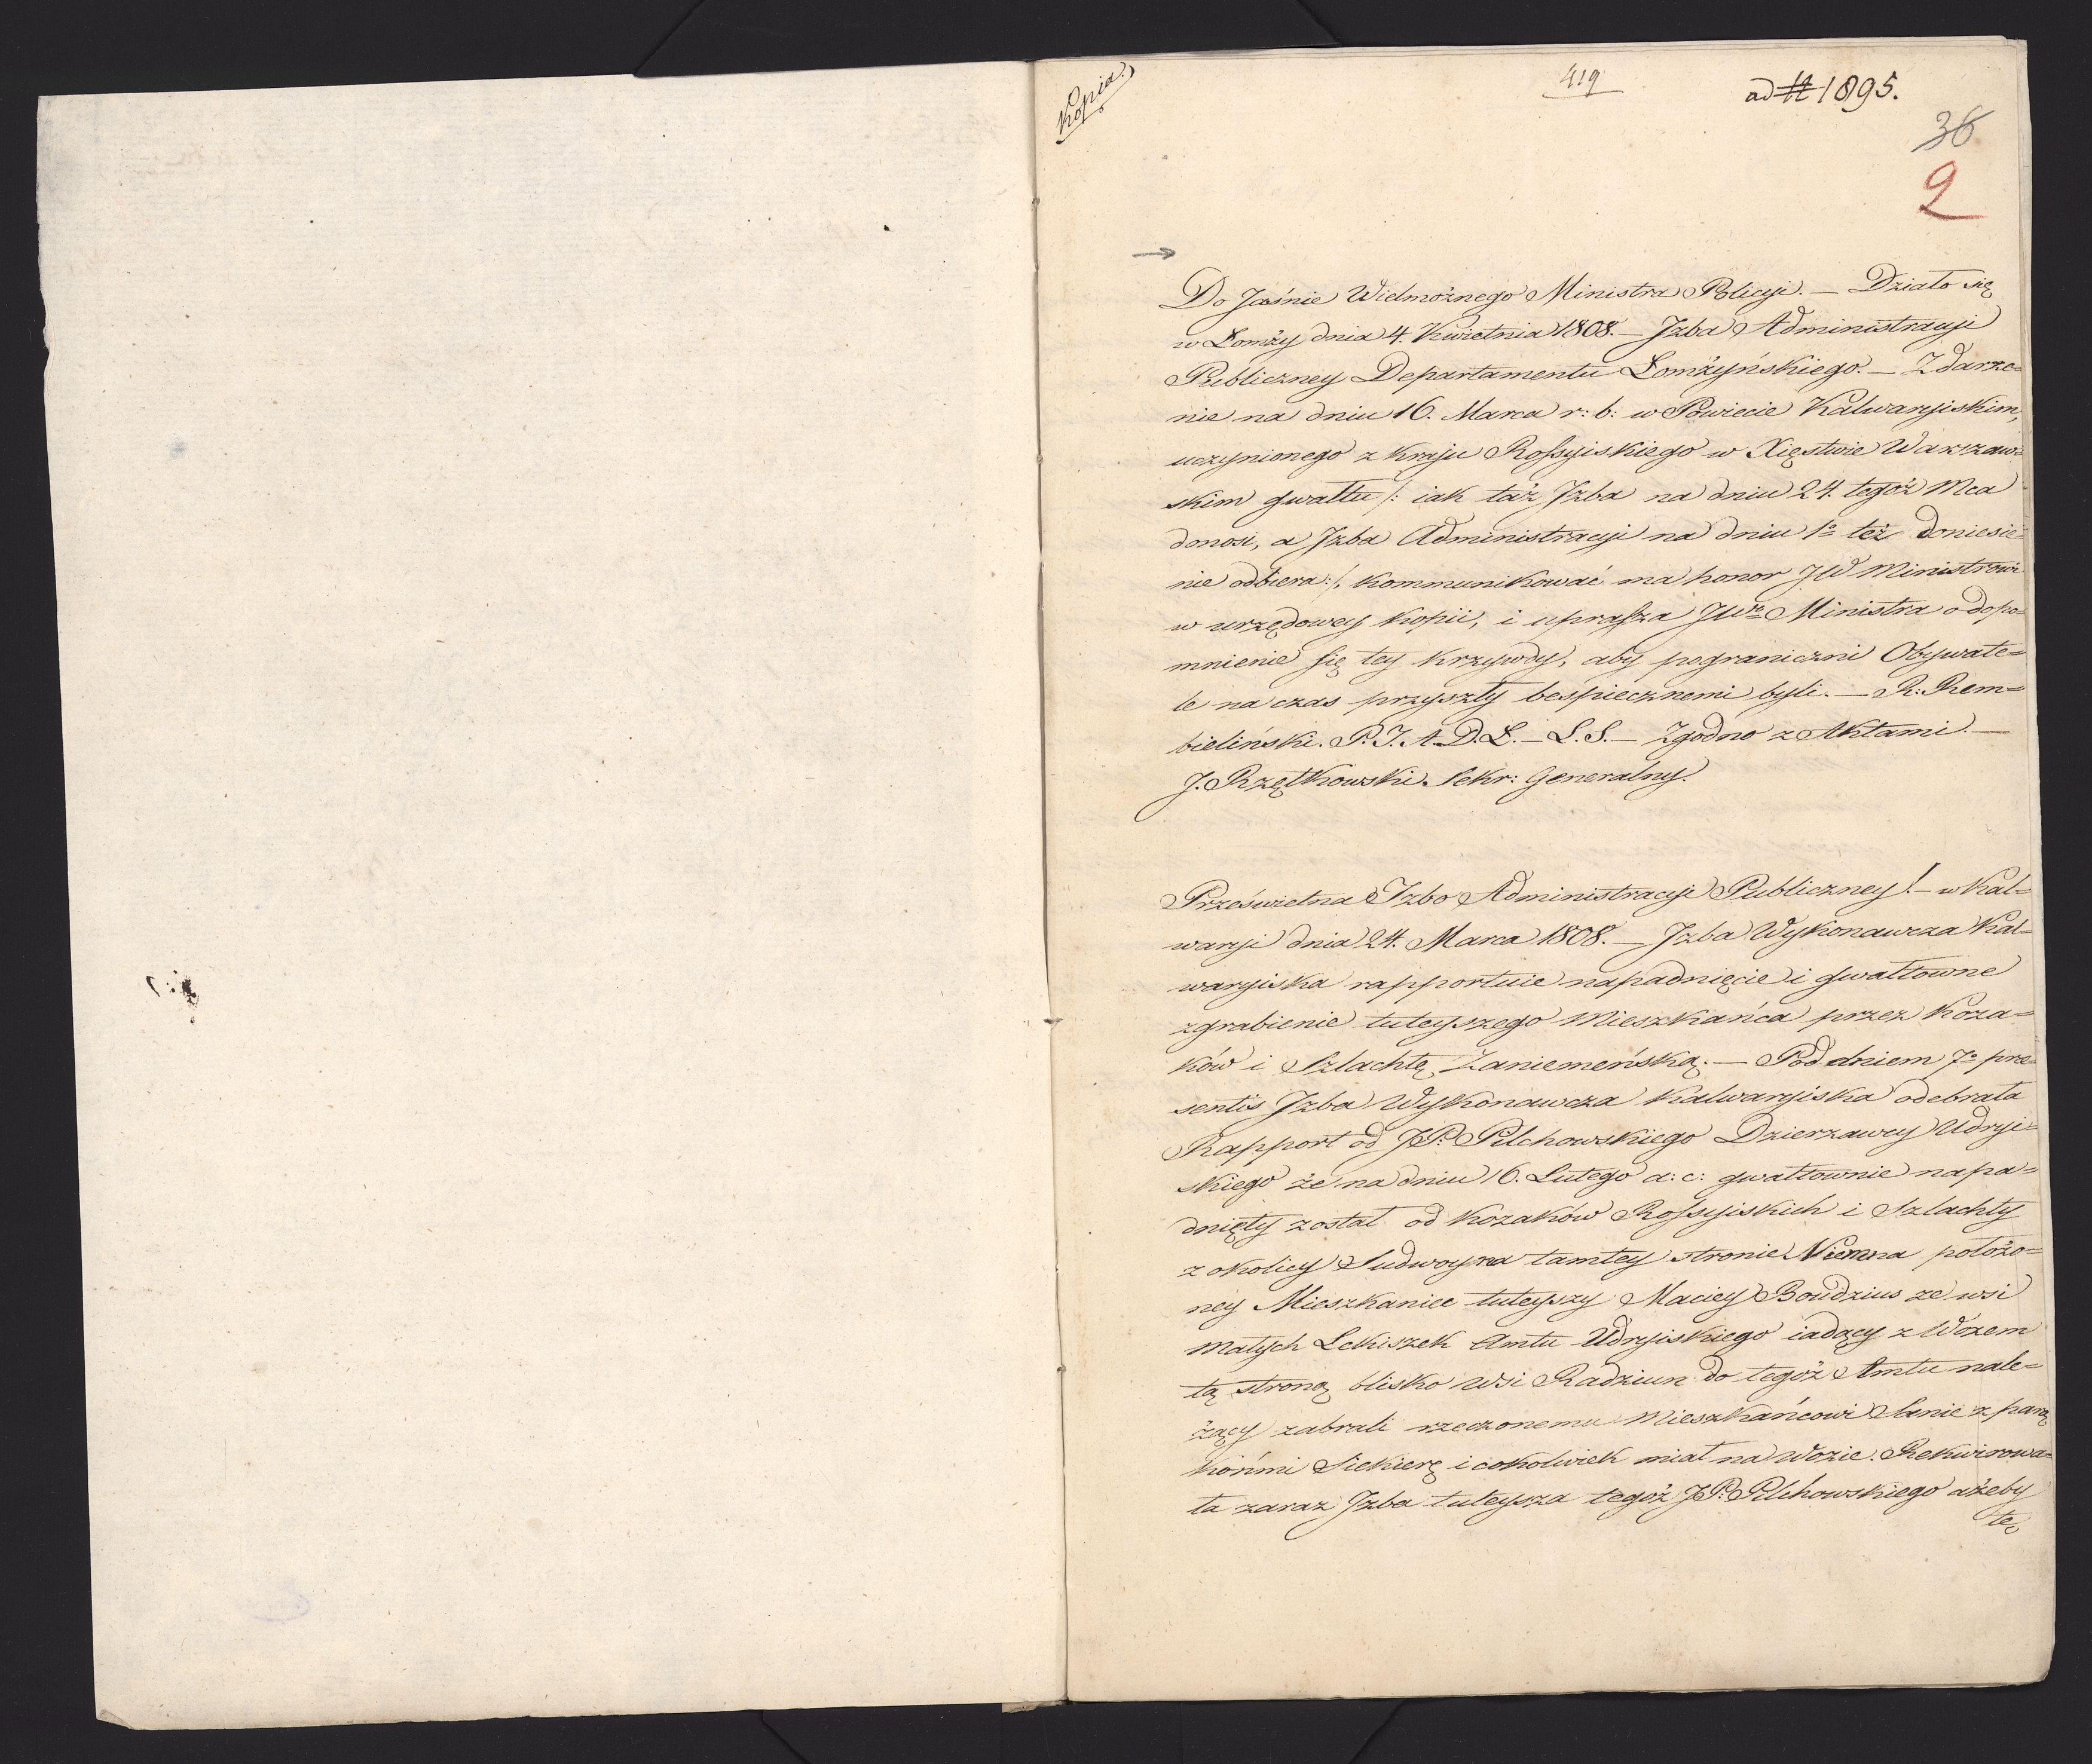 Kopia.
419
ad # 1895.
36
2
Do Jaśnie Wielmożnego Ministra Policyi. — Działo się
w Łomży dnia 4. Kwietnia 1808. — Jzba Administracyi
Publiczney Departamentu Łomżyńskiego. — Zdarze=
nie na dniu 16. Marca r: b: w Powiecie Kalwaryiskim,
uczynionego z Kraju Rossyiskiego w Xięstwie Warszaw=
skim gwałtu /: iak taż Jzba na dniu 24. tegoż Mca
donosi, a Jzba Administracyi na dniu 1º też doniesie=
nie odbiera :/, kommunikować ma honor JW Ministrowi
w urzędowey Kopii, i uprasza JWo Ministra o dopo=
mnienie się tey krzywdy, aby pograniczni Obywate=
le na czas przyszły bespiecznemi byli. — R: Rem=
bieliński. P. J. A. D. Ł. — L. S. — Zgodno z Aktami. —
J. Rzętkowski. Sekr: Generalny.
Prześwietna Jzbo Administracyi Publiczney! — w Kal=
waryi dnia 24. Marca 1808. — Jzba Wykonawcza Kal=
waryiska rapportuie napadnięcie i gwałtowne
zgrabienie tuteyszego Mieszkańca przez Koza=
ków i Szlachtę Zaniemeńską. — Pod dniem 7º prae=
sentis Jzba Wykonawcza Kalwaryiska odebrała
Rapport od JP: Pilchowskiego Dzierzawcy Udryi=
skiego że na dniu 16. Lutego a: c: gwałtownie napa=
dnięty został od Kozaków Rossyiskich i Szlachty
z okolicy Sudwoy na tamtey stronie Niemna położo=
ney Mieszkaniec tuteyszy Maciey Boudzius ze wsi
Małych Lekiszek Amtu Udryiskiego iadący z Wozem
tą stroną blisko Wsi Radziun do tegoż Amtu nale=
żący zabrali rzeczonemu Mieszkańcowi Sanie z parą
końmi Siekierę i cokolwiek miał na Wozie. Rekwirowa=
ła zaraz Jzba tuteysza tegoż JP: Pilchowskiego ażeby
tę